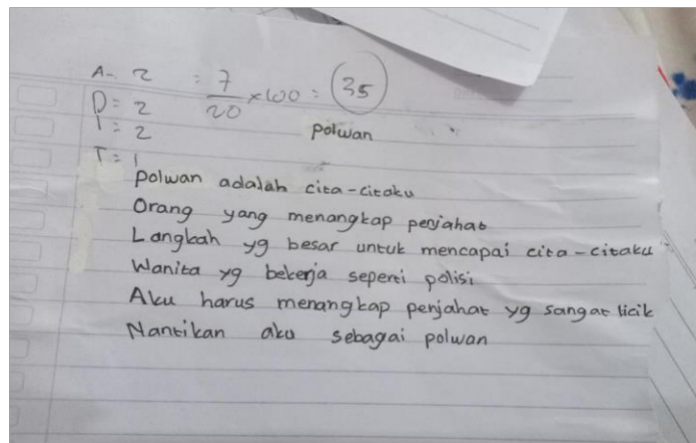 A = 2 : 7/20 x 100 = 35
D = 2
I = 2
T = 1
polwan
polwan adalah cita-citaku
Orang yang menangkap penjahat
Langkah yg besar untuk mencapai cita-citaku
Wanita yg bekerja seperti polisi
Aku harus menangkap penjahat yg sangat licik
Nantikan aku sebagai polwan